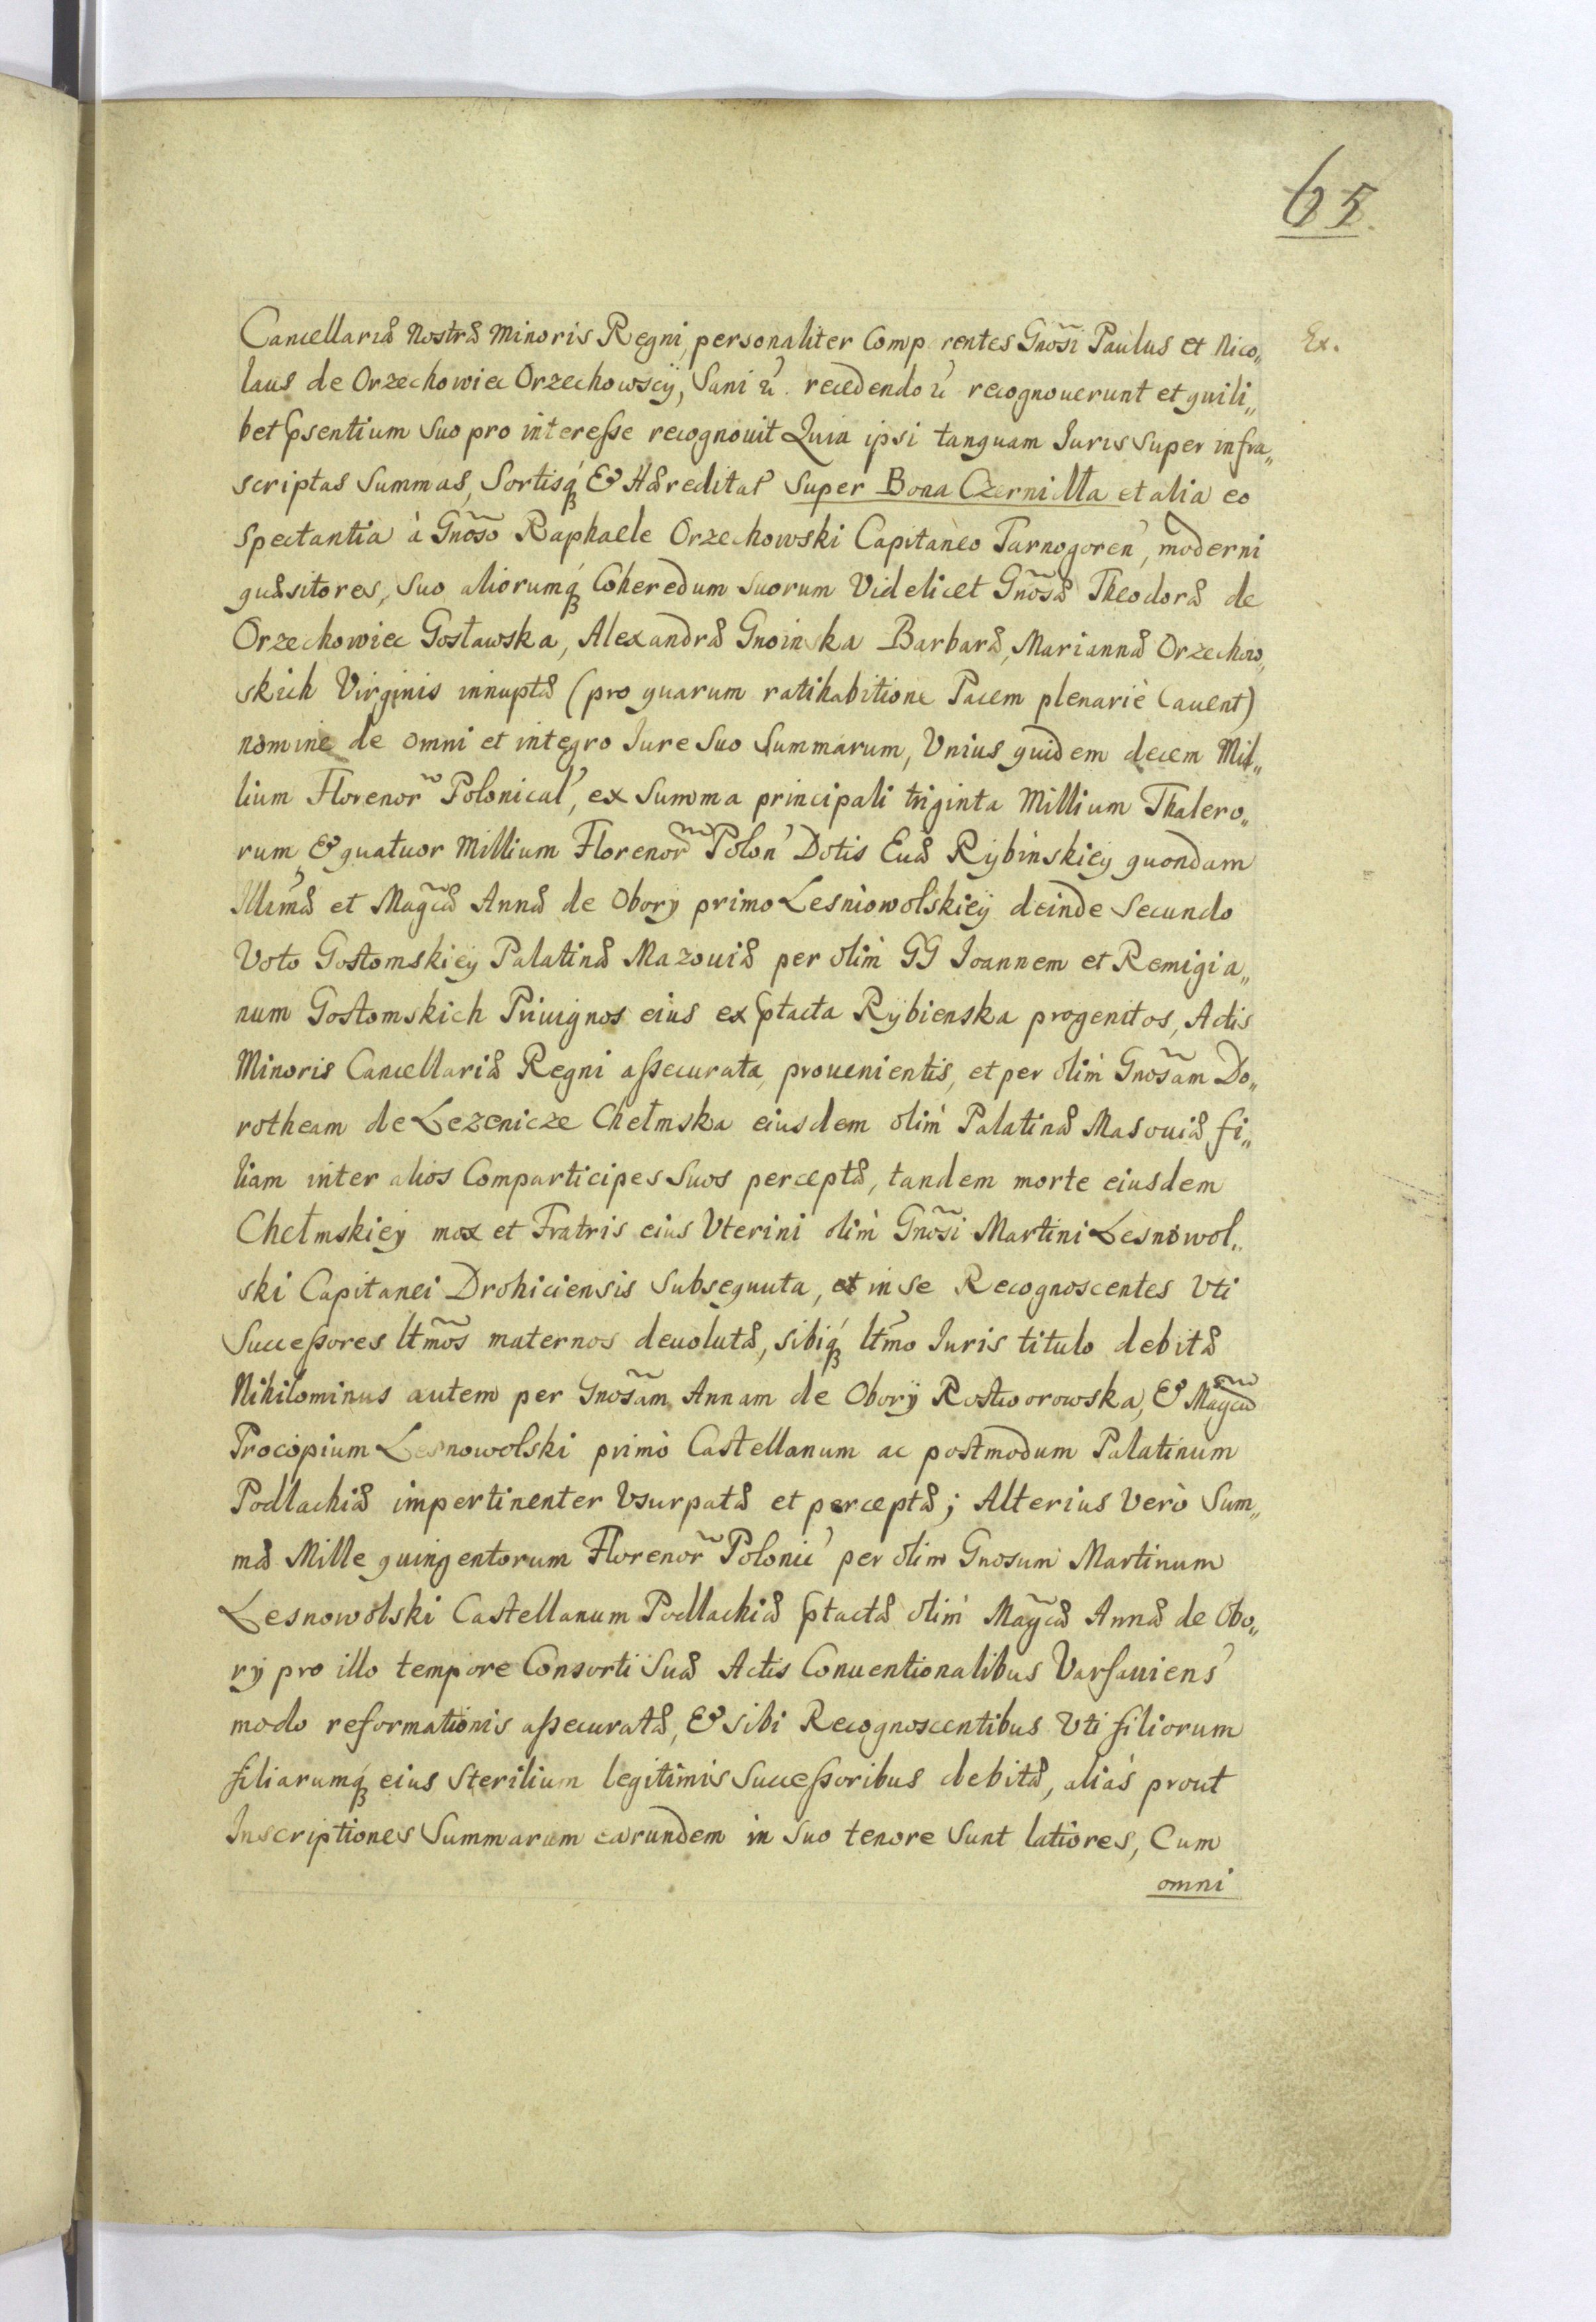 65.
Cancellariæ Nostræ Minoris Regni, personaliter Comp rentes Gnõsi Paulus et Nico„
Ex.
laus de Orzechowiec Orzechowscÿ, Sani &c. recedendo &c recognouerunt et quili„
bet Psentium Suo pro interesse recognouit Quia ipsi tanquam Iuris Super infra„
scriptas Summas, Sortisq́ & Hæreditat Super Bona Czernilla et alia eo
Spectantia à Gnõso Raphaele Orzechowski Capitaneo Tarnogoren', moderni
quæsitores, Suo aliorumq́ Coheredum Suorum Videlicet Gnõsæ Theodoræ de
Orzechowiec Gosławska, Alexandræ Gnoinska Barbaræ, Mariannæ Orzechow„
skich Virginis innuptæ (pro quarum ratihabitione Pacem plenariè Cauent)
nomine de omni et integro Iure Suo Summarum, Vnius quidem decem Mil„
lium Florenor̃ Polonical', ex Summa principali triginta Millium Thalero„
rum & quatuor Millium Florenor̃ Polon' Dotis Euæ Rÿbinskieÿ quondam
Illmæ et Mag̃cæ Annæ de Oborÿ primo Lesniowolskieÿ deinde Secundo
Voto Gostomskieÿ Palatinæ Mazouiæ per olim GG Ioannem et Remigia„
num Gostomskich Priuignos eius ex Ptacta Rÿbienska progenitos, Actis
Minoris Cancellariæ Regni assecurata, prouenientis, et per olim Gnõsam Do„
rotheam de Lezenicze Chełmska eiusdem olim Palatinæ Masouiæ fi„
liam inter alios Comparticipes Suos perceptæ, tandem morte eiusdem
Chełmskieÿ mox et Fratris eius Vterini olim Gnõsi Martini Lesnowol„
ski Capitanei Drohiciensis Subsequuta, et in Se Recognoscentes Vti
Successores ltm̃os maternos deuolutæ, sibiq́ ltmo Iuris titulo debitæ
Nihilominus autem per Gnõsam Annam de Oborÿ Rostworowska, & Mag̃cũ
Procopium Lesnowolski primò Castellanum ac postmodum Palatinum
Podlachiæ impertinenter Vsurpatæ et perceptæ; Alterius Verò Sum„
mæ Mille quingentorum Florenor̃ Polonic' per olim Gnosum Martinum
Lesnowolski Castellanum Podlachiæ Ptactæ olim Mag̃cæ Annæ de Obo„
rÿ pro illo tempore Consorti Suæ Actis Conuentionalibus Varsauiens'
modo reformationis assecuratæ, & sibi Recognoscentibus Vti filiorum
filiarumq́ eius Sterilium legitimis Successoribus debitæ, aliàs prout
Inscriptiones Summarum earundem in Suo tenore Sunt latiores, Cum
omni